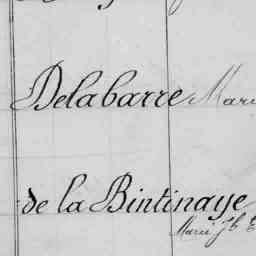 Delabarre Mari
de la Bintinaye
Marie Jh